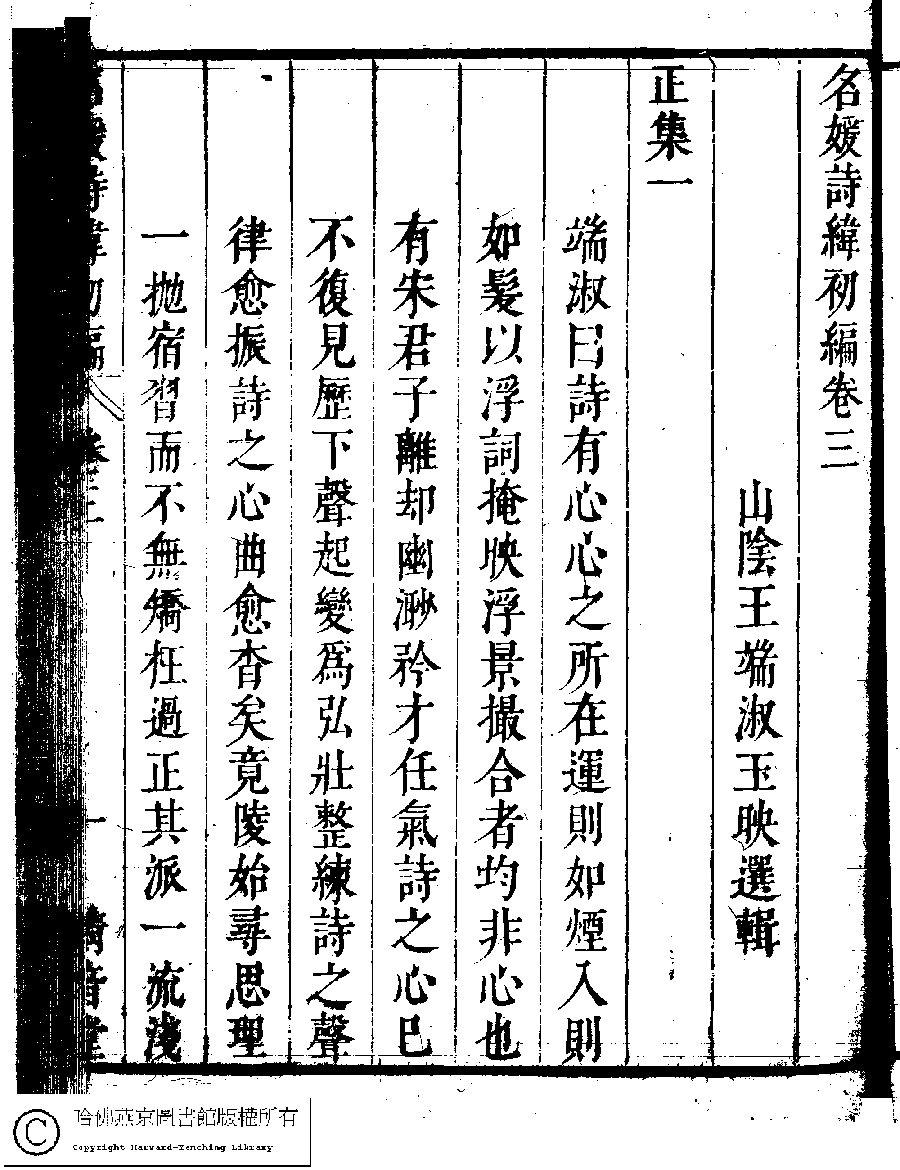 名媛詩緯初編卷三
山陰王端淑玉映選輯
正集一
端淑曰詩有心心之所在運則如煙入則
如髮以浮詞掩映浮景撮合者均非心也
有宋君子離却幽渺矜才任氣詩之心已
不復見歷下聲起變為弘壯整練詩之聲
律愈振詩之心曲愈杳矣竟陵始尋思理
一拋宿習而不無矯枉過正其派一流淺
名媛詩緯初編 卷三 一 清音堂
哈佛燕京圖書館版權所有
Copyright Harvard-Yenching Library